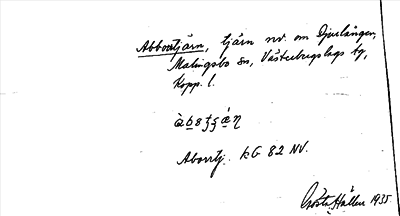 Abborrtjärn, tjärn nv. om Djurlången,
Malingsbo sn, Västerbergslags tg,
Kopp. l.
Aborrtj. kG 82 NV.
Gösta Hallen 1935